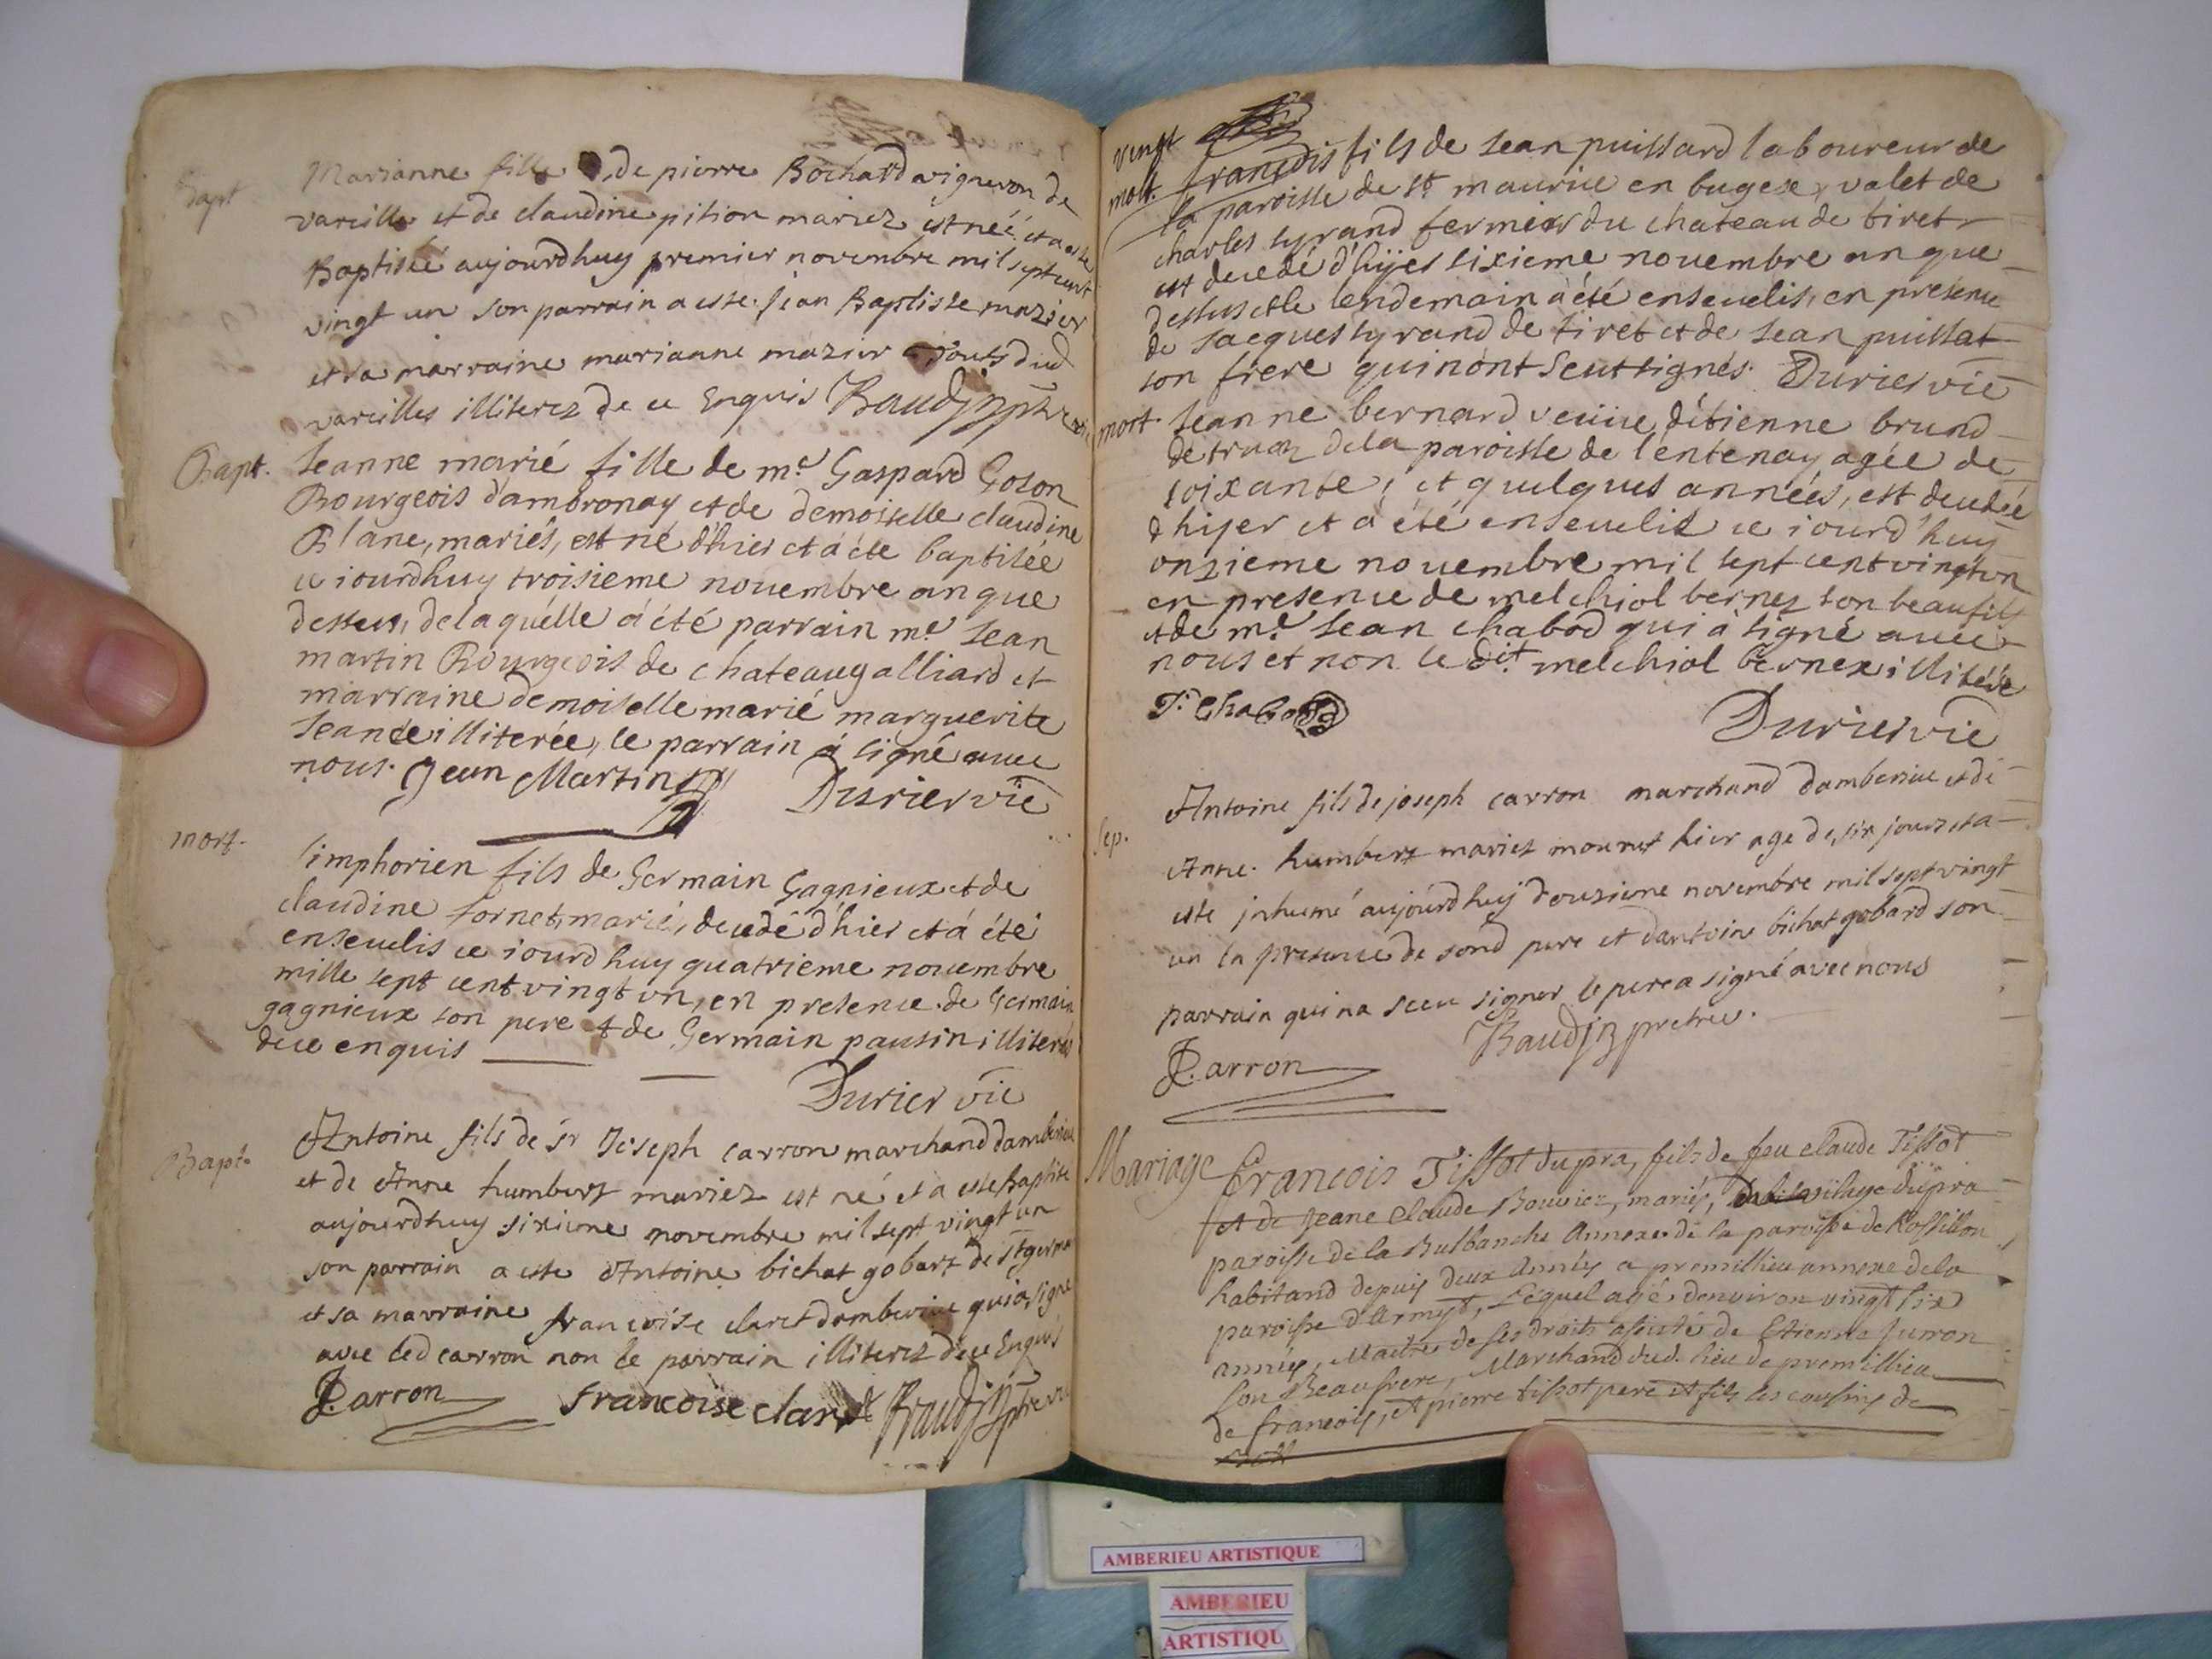 Bapt
Marianne fille de pierre Bochard vigneron de
vareilles et de claudine pition mariez est née et a este
Baptisée aujourdhuy premier novembre mil sept cent
vingt un son parrain a esté jean Baptiste mazier
et sa marraine marianne mazier touts dud
vareilles illiterez de ce Enquis Baudin ptre
Bapt.
Jeanne marié fille de me Gaspard Goson
Bourgeois d'ambronay et de demoiselle claudine
Blanc, mariés, est né d'hier et á été baptisée
ce iourdhuy troisieme nouembre an que
dessus, de laquélle á été parrain me Jean
martin Bourgeois de chateaugalliard et
marraine demoiselle marié marguerite
Jeance illiterée, le parrain á signé auec
nous. Jean Martin Durier vic
mort.
simphorien fils de Germain Gagnieux et de
claudine sornet, mariés, decedé d'hier et á été
enseuelis ce iourd huy quatrieme nouembre
mille sept cent vingt vn, en presence de Germain
gagnieux son pere & de Germain pausin illiterés
de ce enquis
Durier vic
Bapt.
Antoine fils de sr Joseph carron marchand damberieu
et de Anne humbert mariez est né et a esté baptisé
aujourdhuy sixieme novembre mil sept vingt un
son parrain a este Antoine bichat gobart de st germain
et sa marraine francoise claret damberieu qui a signé
avec led carron non le parrain illiterez de ce Enquis
J. Carron francoise claret Baudin ptre vic
vingt
mort. francois fils de Jean puissard laboureur de
la paroisse de st maurice en bugese, valet de
charles tyrand fermier du chateau de tiret
est decedé d'hÿer sixieme nouembre an que
dessus et le lendemain à été enseuelis, en presence
de Jacques tyrand de tiret et de Jean puissat
son frere qui n'ont sceut signés. Durier vic
mort. Jeanne bernard veuue d'étienne brund
de truaz de la paroisse de l'entenay agée de
soixante, et quelques années, est decedée
d'hijer et a été enseuelis ce iourd'huy
onzieme nouembre mil sept cent vingt vn
en presence de melchiol bernez son beaufils
et de me Jean chabod qui à signé auec
nous et non le dit melchiol bernex illitére
J. Chabod
Durier vic
Sep.
Antoine fils de joseph carron marchand damberieu et de
Anne humbert mariez mourut hier age de six jours et a
este inhumé aujourdhuy douzieme novembre mil sept vingt
un en presence de sond pere et dantoine bichat gobard son
parrain qui na sceu signer le pere a signé avec nous
J. Carron Baudin pretre.
Mariage
francois Tissot dupra, fils de feu claude Tissot
et de Jeane Claude Bouvier, mariés, du vilage du pra
paroisse de la Bulbanche Annexe de la paroisse de Rossillon
habitand depuis deux années a premillieu annexe de la
paroisse d'Armyx, Lequel agé d'environ vingt six
années, Maitre de ses droits assisté de Etienne Juron
son Beaufrere, Marchand dud. lieu de premillieu
de francois, et pierre tissot pere et fils ses cousins de
AMBERIEU ARTISTIQUE
AMBERIEU
ARTISTIQU